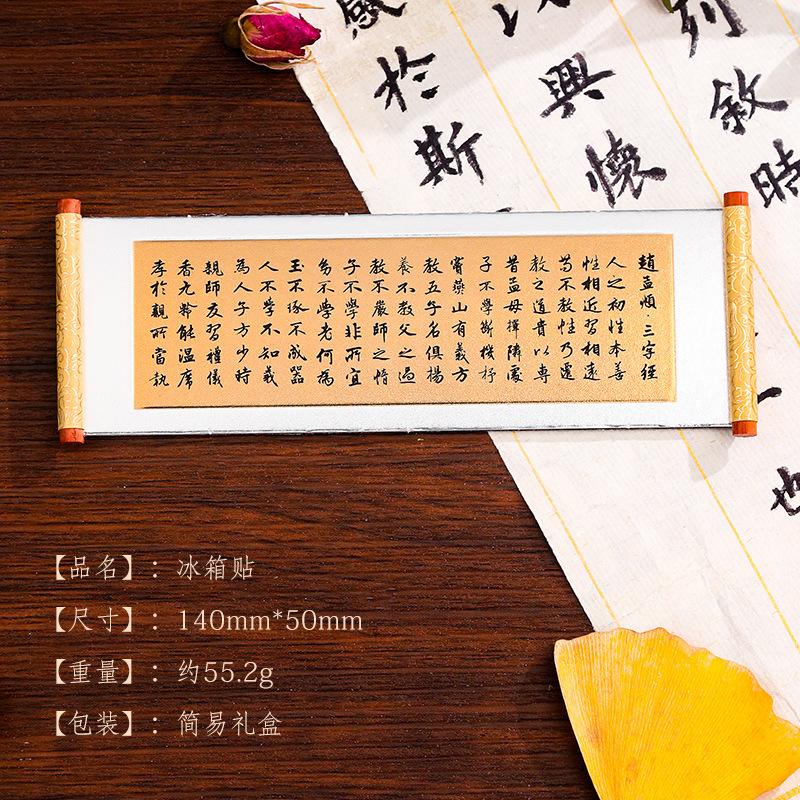 列敘時
也
興懷
於斯
趙孟頫·三字經
人之初性本善
性相近習相遠
苟不教性乃遷
教之道貴以專
昔孟母擇隣處
子不學斷機杼
竇燕山有義方
教五子名俱揚
養不教父之過
教不嚴師之惰
子不學非所宜
幼不學老何為
玉不琢不成器
人不學不知義
為人子方少時
親師友習禮儀
香九齡能溫席
孝於親所當執
【品名】：冰箱贴
【尺寸】：140mm*50mm
【重量】：约55.2g
【包装】：简易礼盒